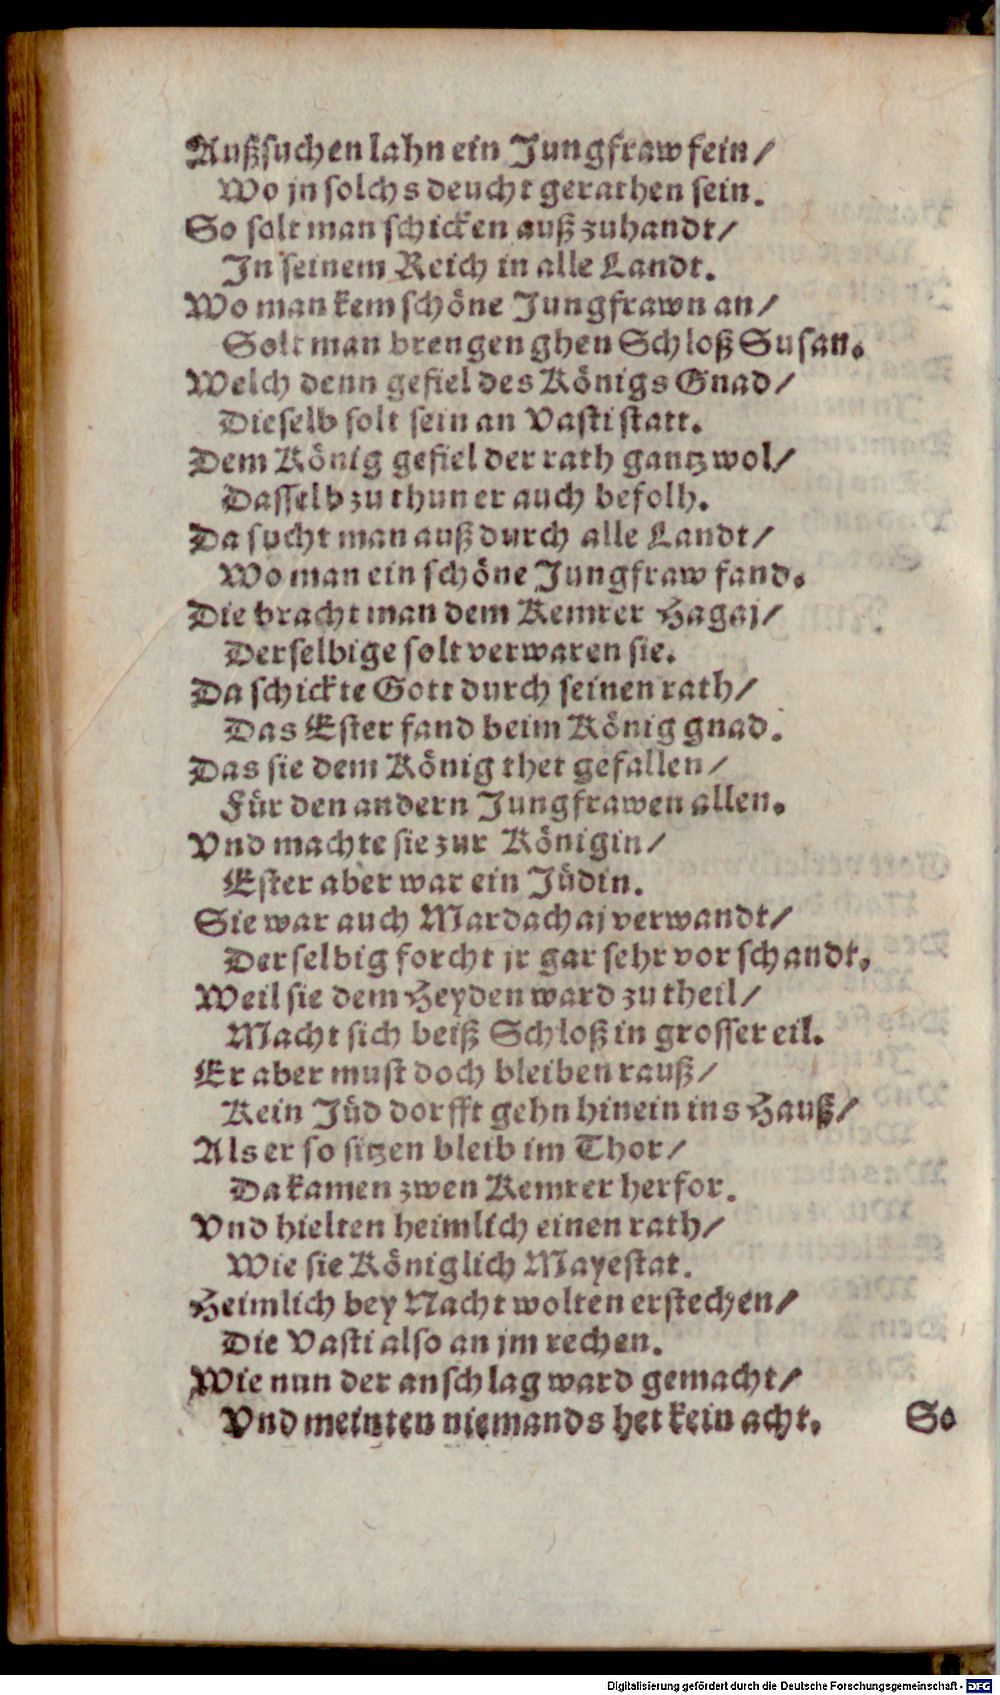 Außsuchen lahn ein Jungfraw fein/
Wo jn solchs deucht gerathen sein.
So solt man schicken auß zuhandt/
In seinem Reich in alle Landt.
Wo man kem schöne Jungfrawn an/
Solt man brengen ghen Schloß Susan.
Welch denn gefiel des Königs Gnad/
Dieselb solt sein an Vasti statt.
Dem König gefiel der rath gantz wol/
Dasselb zu thun er auch befolh.
Da sucht man auß durch alle Landt/
Wo man ein schöne Jungfraw fand.
Die bracht man dem Kemrer Hagaj/
Derselbige solt verwaren sie.
Da schickte Gott durch seinen rath/
Das Ester fand beim König gnad.
Das sie dem König thet gefallen/
Für den andern Jungfrawen allen.
Vnd machte sie zur Königin/
Ester aber war ein Jüdin.
Sie war auch Mardachaj verwandt/
Derselbig forcht jr gar sehr vor schandt.
Weil sie dem Heyden ward zu theil/
Macht sich beiß Schloß in grosser eil.
Er aber must doch bleiben rauß/
Kein Jüd dorfft gehn hinein ins Hauß/
Als er so sitzen bleib im Thor/
Da kamen zwen Kemrer herfor.
Vnd hielten heimlich einen rath/
Wie sie Königlich Mayestat.
Heimlich bey Nacht wolten erstechen/
Die Vasti also an jm rechen.
Wie nun der anschlag ward gemacht/
Vnd meinten niemands het kein acht. So
Digitalisierung gefördert durch die Deutsche Forschungsgemeinschaft - DFG